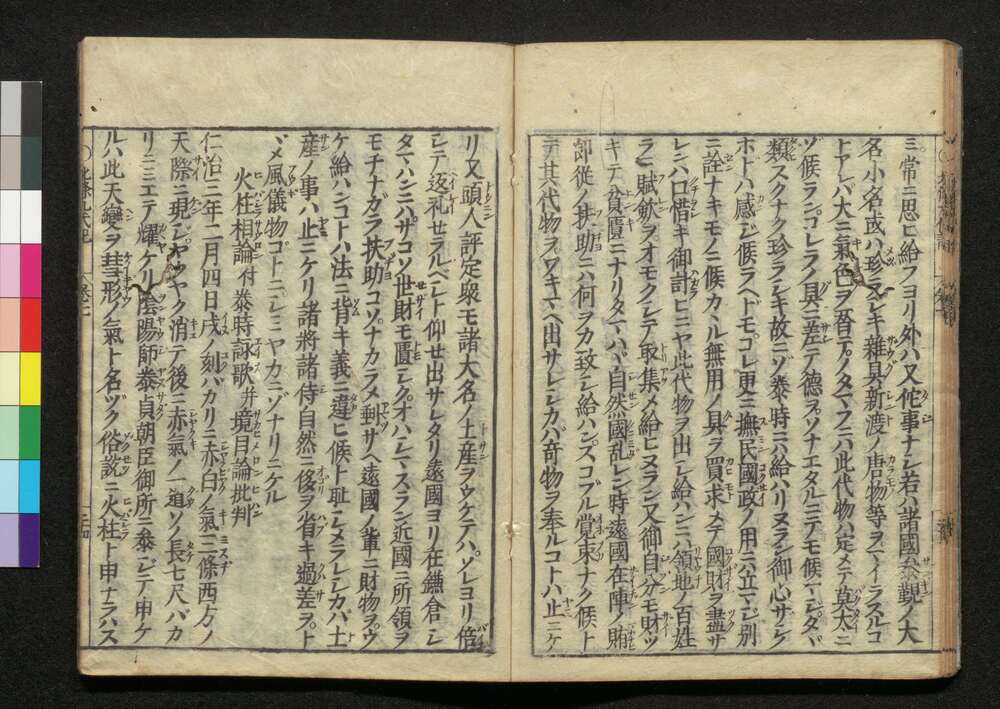 ニ常ニ思ヒ給フヨリ外ハ又他事ナシ若ハ諸國参覲ノ大
名小名或ハ珍ラシキ雜具新渡ノ唐物等ヲマイラスルコ
トアレバ大ニ氣色ヲ替テノタマフニハ此代物ハ定メテ莫大ニ
ゾ候ランコレラノ具ニ差テ德ヲソナエタルニテモ候マジタヾ
類スクナク珍ラシキ故ニゾ泰時ニハ給ハリヌラン御心サシケ
ホトハ感ジ候ラヘドモコレ更ニ撫民國政ノ用ニハ立マジ別
ニ詮ナキモノニ候カヽル無用ノ具ヲ買求メテ國財ヲ盡サ
レンハ口惜キ御計ヒニヤ此代物ヲ出シ給ハンニハ領地ノ百姓
ラニ賦斂ヲオモクシテ取集メ給ヒヌラン又御自分モ財ツ
キテ貧匱ニナリタマハヾ自然國乱レン時遠國在陣ノ賄
郎從ノ扶助ニハ何ヲカ致シ給ハンズコブル覺束ナク候ト
テ其代物ヲワキマヘ出サレシカバ奇物ヲ奉ルコトハ止ニケ
リ又頭人評定衆モ諸大名ノ土産ヲウケテハソレヨリ倍
シテ返礼セラルベシト仰セ出サレタリ遠國ヨリ在鎌倉シ
タマハンニハサコソ世財モ匱シクオハシマスラン近國ニ所領ヲ
モチナガラ扶助コソナカラメ剰サヘ遠國ノ輩ニ財物ヲウ
ケ給ハンコトハ法ニ背キ義ニ違ヒ候ト耻シメラレシカバ土
産ノ事ハ止ニケリ諸將諸侍自然ニ後ヲ省キ過差ヲト
ドメ風儀物ゴトニシミヤカニゾナリニケル
火柱相論付泰時詠歌并境目論批判
仁治三年二月四日戌ノ刻バカリニ赤白ノ氣三條西方ノ
天際ニ現ジヤウヤク消テ後ニ赤氣ノ一道ソノ長七尺バカ
リニミエテ耀ケリ陰陽師泰貞朝臣御所ニ参ジテ申ケ
ルハ此天變ヲ彗形ノ氣ト名ヅク俗説ニ火柱ト申ナラハス